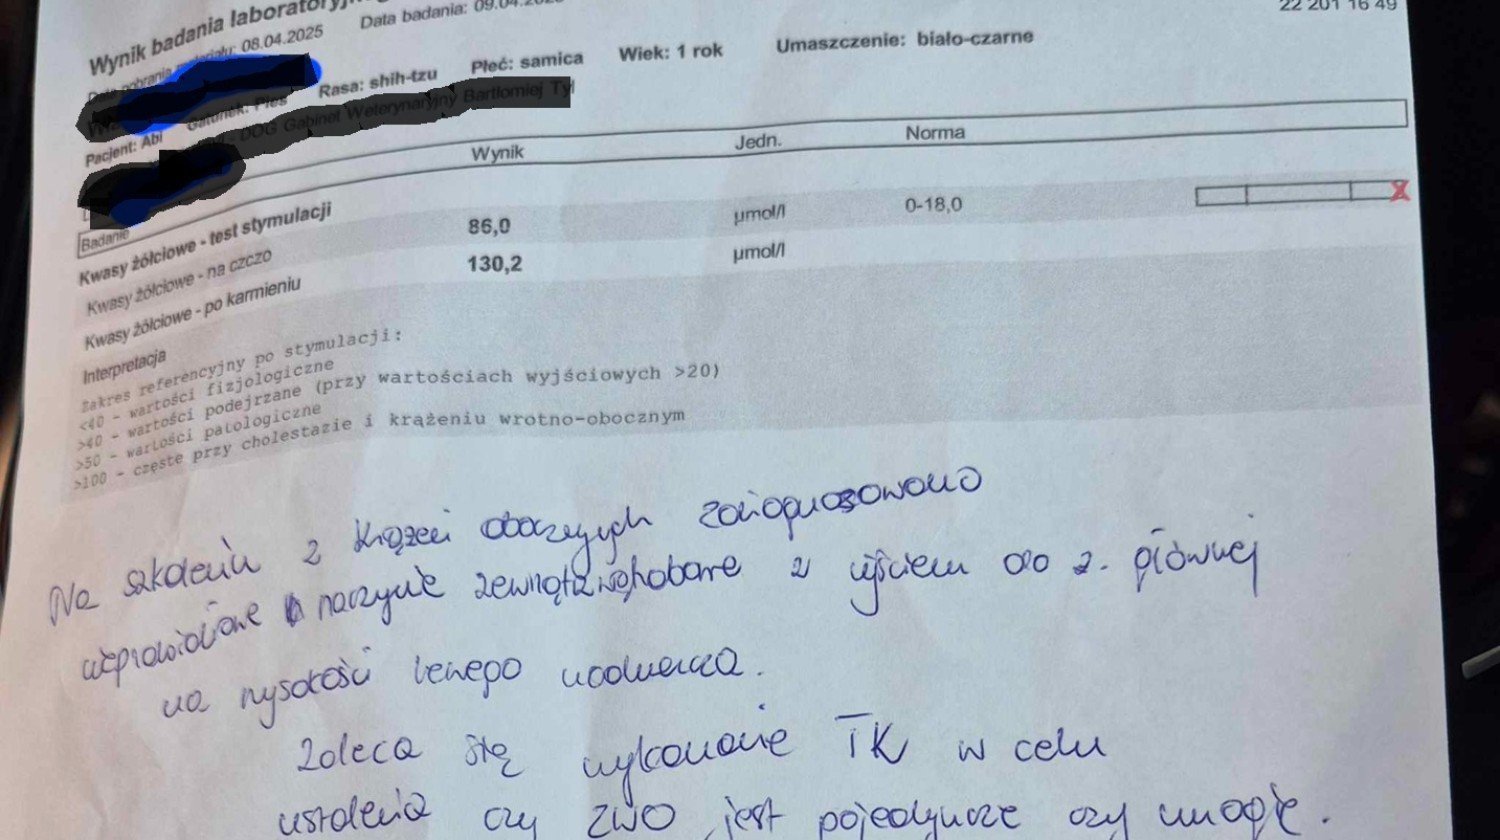 Wynik badania laboratoryjnego
22 201 16 49
materiału: 08.04.2025 Data badania: 09.04.
Pacjent: Abi Gatunek: Pies Rasa: shih-tzu Płeć: samica Wiek: 1 rok Umaszczenie: biało-czarne
DOG Gabinet Weterynaryjny Bartłomiej
Badanie Wynik Jedn. Norma
Kwasy żółciowe - test stymulacji
Kwasy żółciowe - na czczo 86,0 µmol/l 0-18,0 X
Kwasy żółciowe - po karmieniu 130,2 µmol/l
Interpretacja
Zakres referencyjny po stymulacji:
<40 - wartości fizjologiczne
>40 - wartości podejrzane (przy wartościach wyjściowych >20)
>50 - wartości patologiczne
>100 - częste przy cholestazie i krążeniu wrotno-obocznym
Na szkoleniu z krążeń obocznych zdiagnozowano
nieprawidłowe naczynie zewnątrzwątrobowe z ujściem do ż. głównej
na wysokości lewego nadnercza.
Zaleca się wykonanie TK w celu
ustalenia czy ZWO jest pojedyncze czy mnogie.